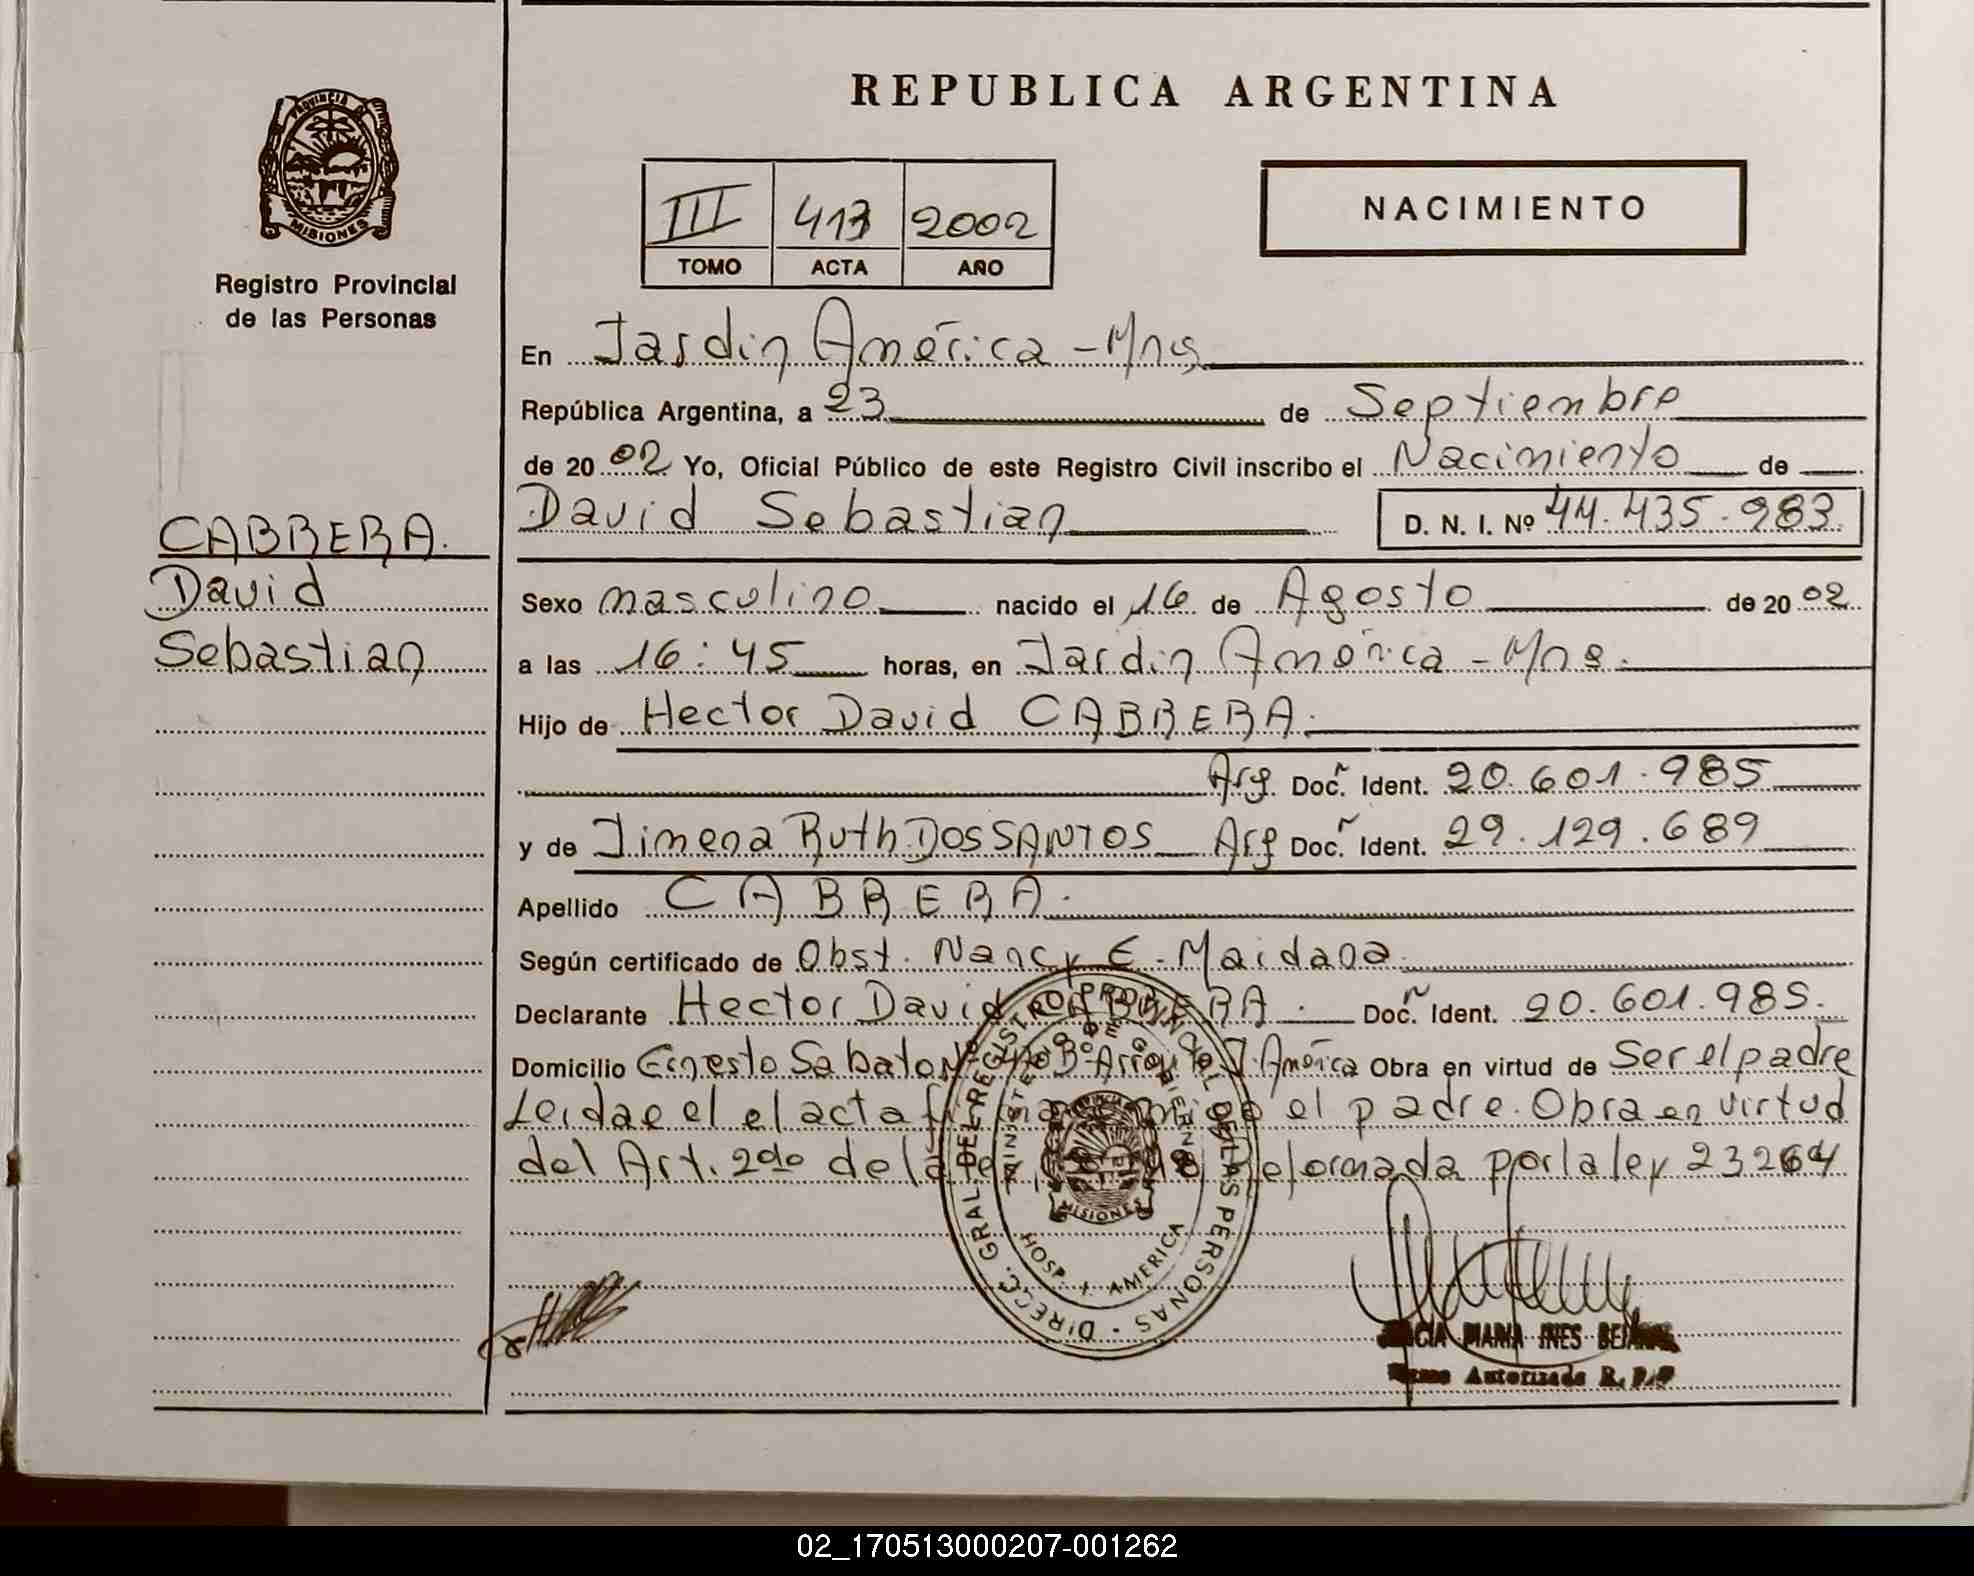 REPUBLICA ARGENTINA
PROVINCIA DE
MISIONES
Registro Provincial
de las Personas
III 413 2002
TOMO ACTA AÑO
NACIMIENTO
En Jardin América - Mns
República Argentina, a 23 de Septiembre
de 2002 Yo, Oficial Público de este Registro Civil inscribo el Nacimiento de
David Sebastian D. N. I. Nº 44.435.983
CABRERA.
David
Sebastian
Sexo masculino nacido el 16 de Agosto de 2002
a las 16:45 horas, en Jardin América - Mns.
Hijo de Hector David CABRERA.
Arg. Doc. Ident. 20.601.985
y de Jimena Ruth DOS SANTOS Arg Doc. Ident. 29.129.689
Apellido CABRERA.
Según certificado de Obst. Nancy E. Maidana
Declarante Hector David CABRERA. Doc. Ident. 20.601.985.
Domicilio Ernesto Sabato Bº J. América Obra en virtud de Ser el padre
Leidae el el acta el padre. Obra en virtud
del Art. 2do de la reformada por la ley 23264
DIRECC. GRAL. DEL REGISTRO PROVINCIAL DE LAS PERSONAS
MINISTERIO DE GOBIERNO
MISIONES
HOSP. J. AMERICA
MARIA INES
Autorizada R. P. P
02_170513000207-001262